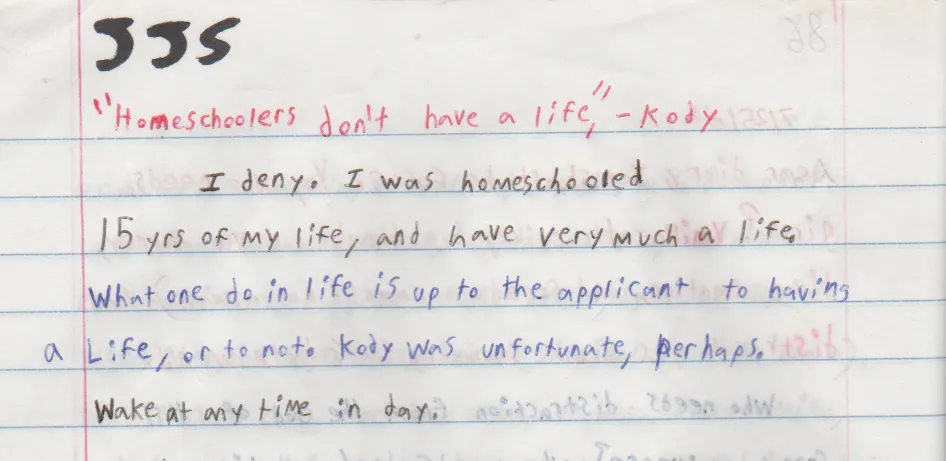 JJS
"Homeschoolers don't have a life," - Kody
I deny. I was homeschooled
15 yrs of my life, and have very much a life.
What one do in life is up to the applicant to having
a Life, or to not. Kody was unfortunate, perhaps.
Wake at any time in day.